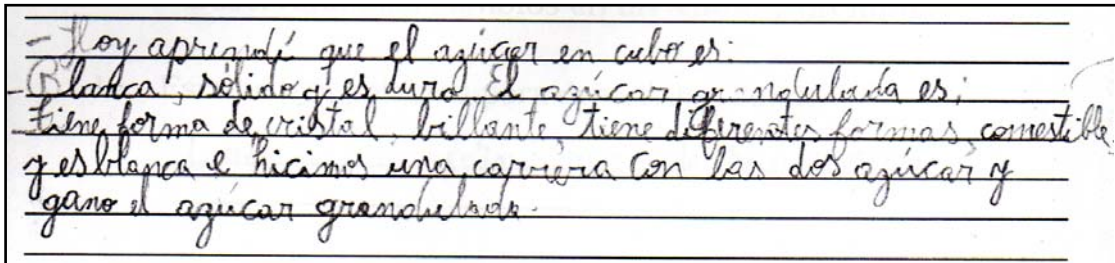 - Hoy aprendí que el azúcar en cubo es:
- Blanca, sólido y es duro El azúcar grandulada es;
tiene forma de cristal, brillante, tiene diferentes formas, comestible,
y es blanca e hicimos una carrera con las dos azúcar y
gano el azúcar grandulada.